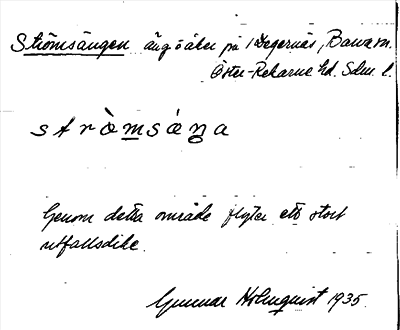 Strömsängen äng o åker på 1 Degernäs, Barva sn.
Öster-Rekarne hd. Sdm. l.
strò̀msáŋa
Genom detta område flyter ett stort
utfallsdike.
Gunnar Holmquist 1935.